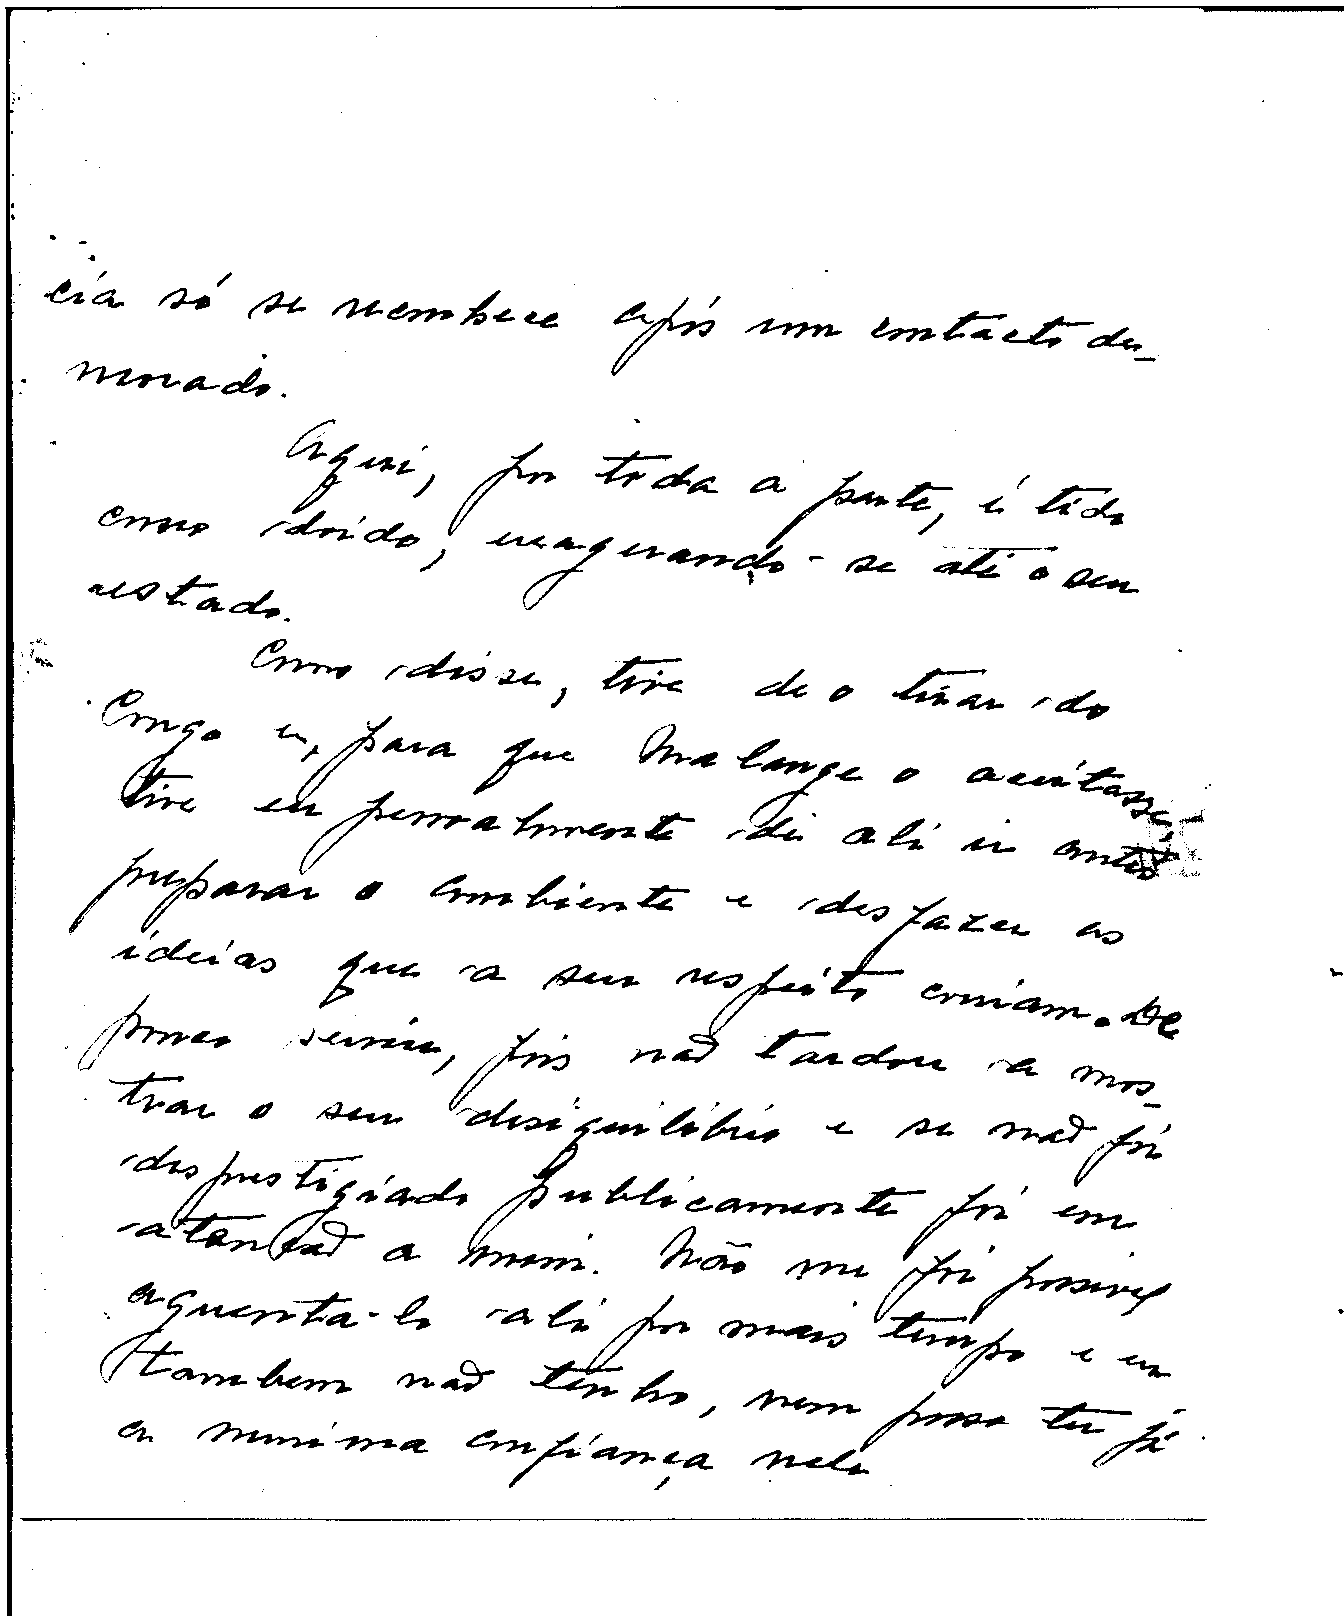 cía só se reconhece após um contacto de-
morado.
Aqui, por toda a parte, é tido
como doido, exagerando-se até o seu
estado.
Como disse, tive de o tirar do
Congo e, para que Malange o aceitasse,
tive eu pessoalmente de ali ir antes
preparar o ambiente e desfazer as
ideias que a seu respeito corriam. De
pouco serviu, pois não tardou a mos-
trar o seu desiquilíbrio e se não foi
desprestigiado publicamente foi em
atenção a mim. Não me foi possivel
aguenta-lo ali por mais tempo e eu
tambem não tenho, nem posso ter já
a minima confiança nele